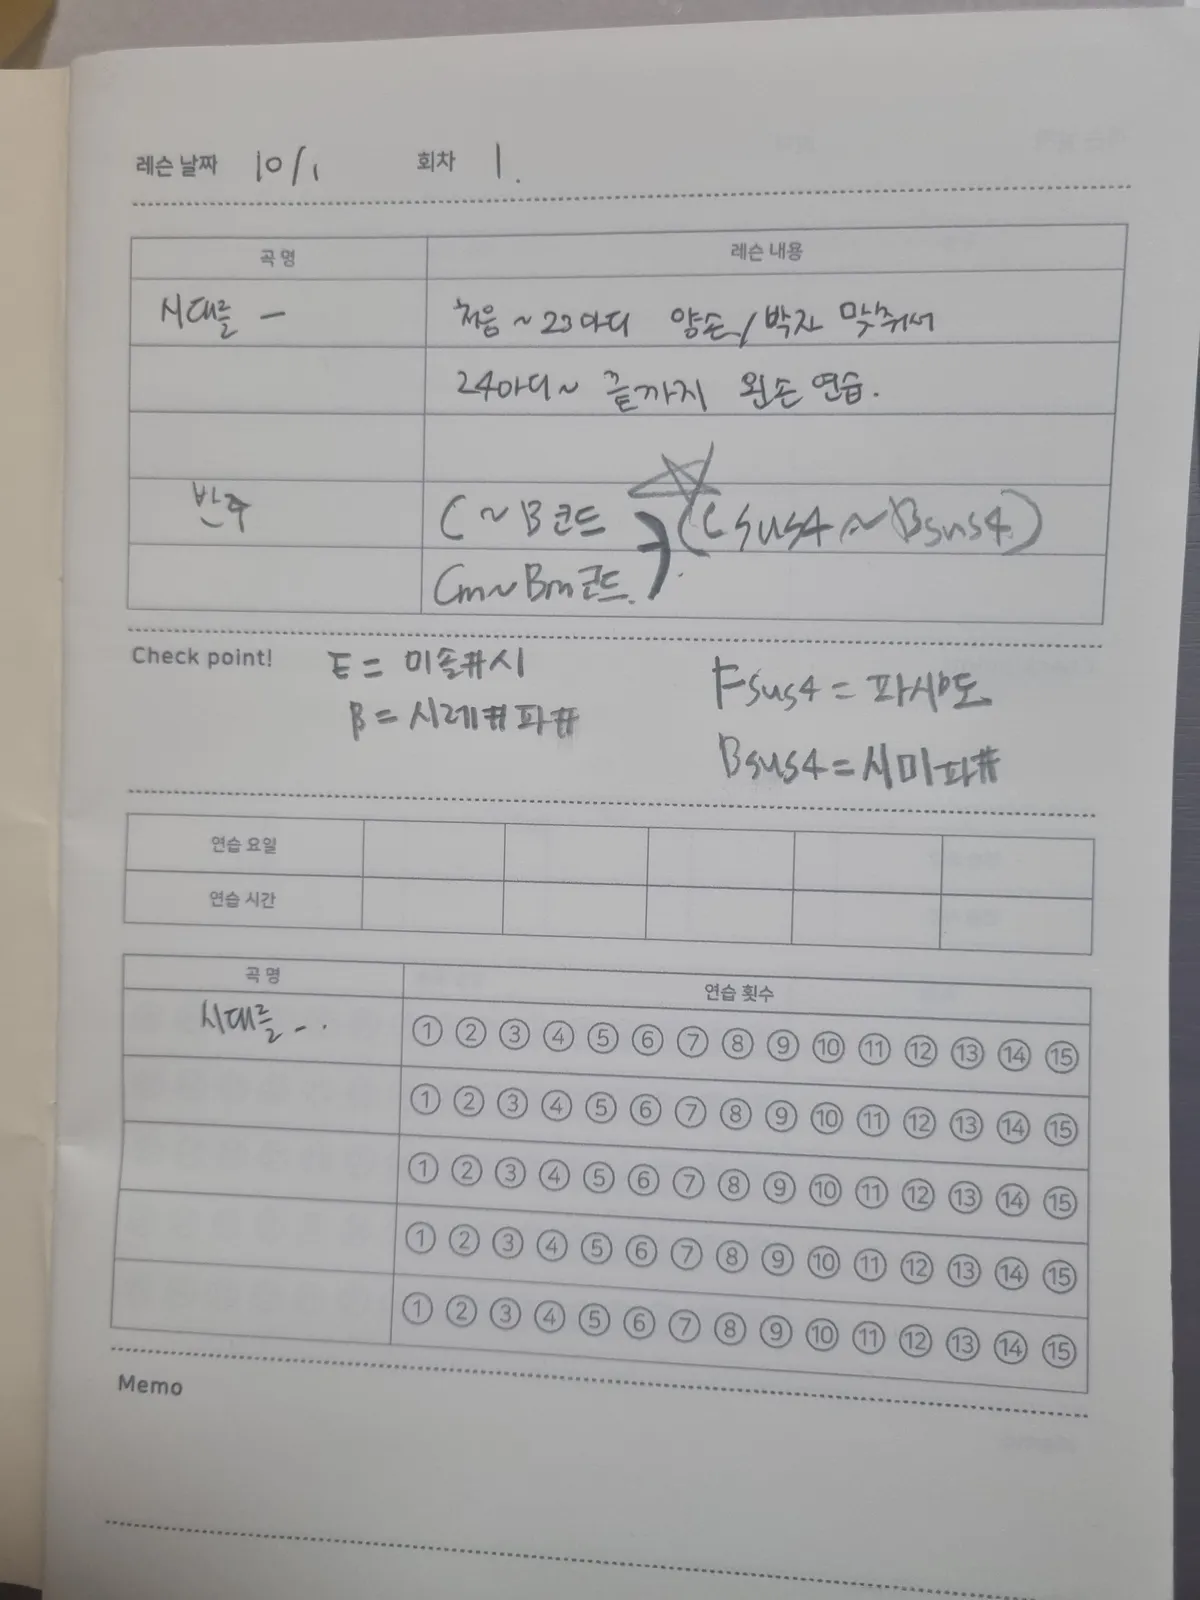 레슨 날짜 10/1 회차 1.
곡 명 레슨 내용
시대를 – 처음 ~ 23마디 양손/박자 맞춰서
24마디~ 끝까지 왼손 연습.
반주 C ~ B 코드 (Csus4 ~ Bsus4)
Cm~Bm코드.
Check point! E = 미솔#시 Fsus4 = 파시b도
B = 시레#파# Bsus4 = 시미파#
연습 요일
연습 시간
곡 명 연습 횟수
시대를 –..
① ② ③ ④ ⑤ ⑥ ⑦ ⑧ ⑨ ⑩ ⑪ ⑫ ⑬ ⑭ ⑮
① ② ③ ④ ⑤ ⑥ ⑦ ⑧ ⑨ ⑩ ⑪ ⑫ ⑬ ⑭ ⑮
① ② ③ ④ ⑤ ⑥ ⑦ ⑧ ⑨ ⑩ ⑪ ⑫ ⑬ ⑭ ⑮
① ② ③ ④ ⑤ ⑥ ⑦ ⑧ ⑨ ⑩ ⑪ ⑫ ⑬ ⑭ ⑮
① ② ③ ④ ⑤ ⑥ ⑦ ⑧ ⑨ ⑩ ⑪ ⑫ ⑬ ⑭ ⑮
Memo